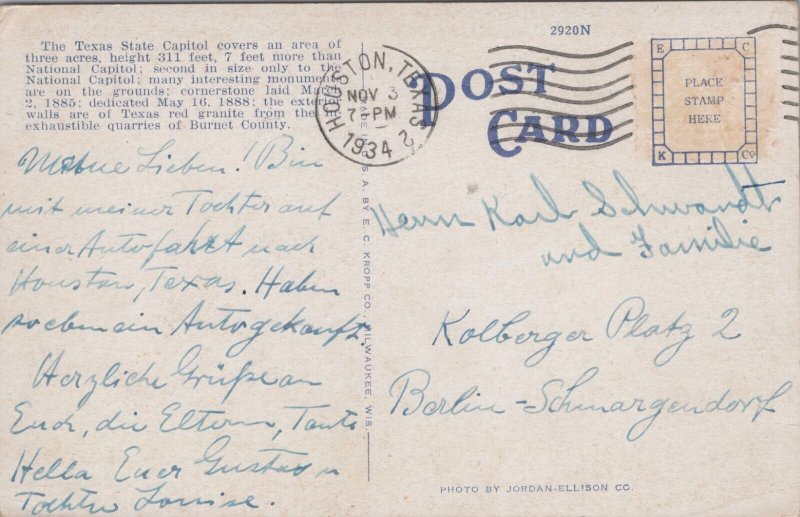 The Texas State Capitol covers an area of
three acres, height 311 feet, 7 feet more than
National Capitol; second in size only to the
National Capitol; many interesting monuments
are on the grounds; cornerstone laid March
2, 1885; dedicated May 16, 1888; the exterior
walls are of Texas red granite from the
exhaustible quarries of Burnet County.
Meine Lieben! Bin
mit meiner Tochter auf
einer Autofahrt nach
Houston, Texas. Haben
soeben ein Auto gekauft.
Herzliche Grüße an
Euch, die Eltern, Tante
Hella Euer Gustav u
Tochter Louise.
S A. BY E. C. KROPP CO., MILWAUKEE, WIS.
2920N
HOUSTON, TEXAS 2
NOV 3
7-PM
1934
POST
CARD
E C
PLACE
STAMP
HERE
K Co
Herrn Karl Schwandt
und Familie
Kolberger Platz 2
Berlin-Schmargendorf
PHOTO BY JORDAN-ELLISON CO.